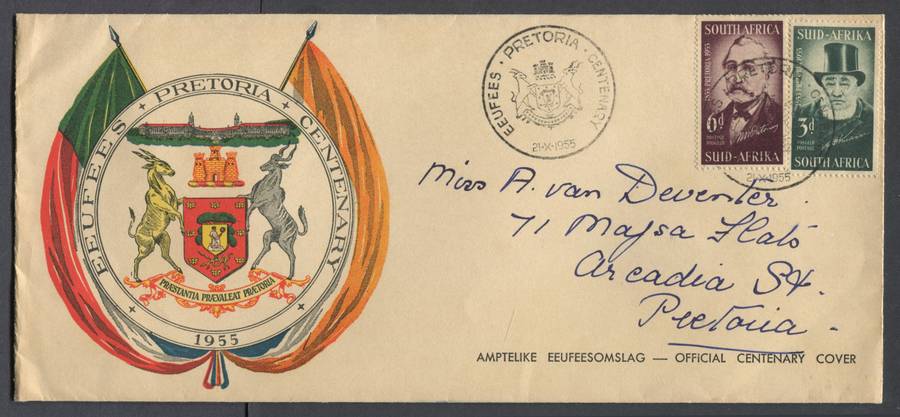 EEUFEES + PRETORIA + CENTENARY
PRÆSTANTIA PRÆVALEAT PRÆTORIA
1955
EEUFEES · PRETORIA · CENTENARY
21-X-1955
SOUTH AFRICA
1855 PRETORIA 1955
6d
POSTAGE
POSSEEL
SUID-AFRIKA
SUID-AFRIKA
1855 PRETORIA 1955
3d
POSSEEL
POSTAGE
SOUTH AFRICA
21-X-1955
Miss A. van Deventer.
71 Majsa Flats
Arcadia St.
Pretoria.
AMPTELIKE EEUFEESOMSLAG — OFFICIAL CENTENARY COVER